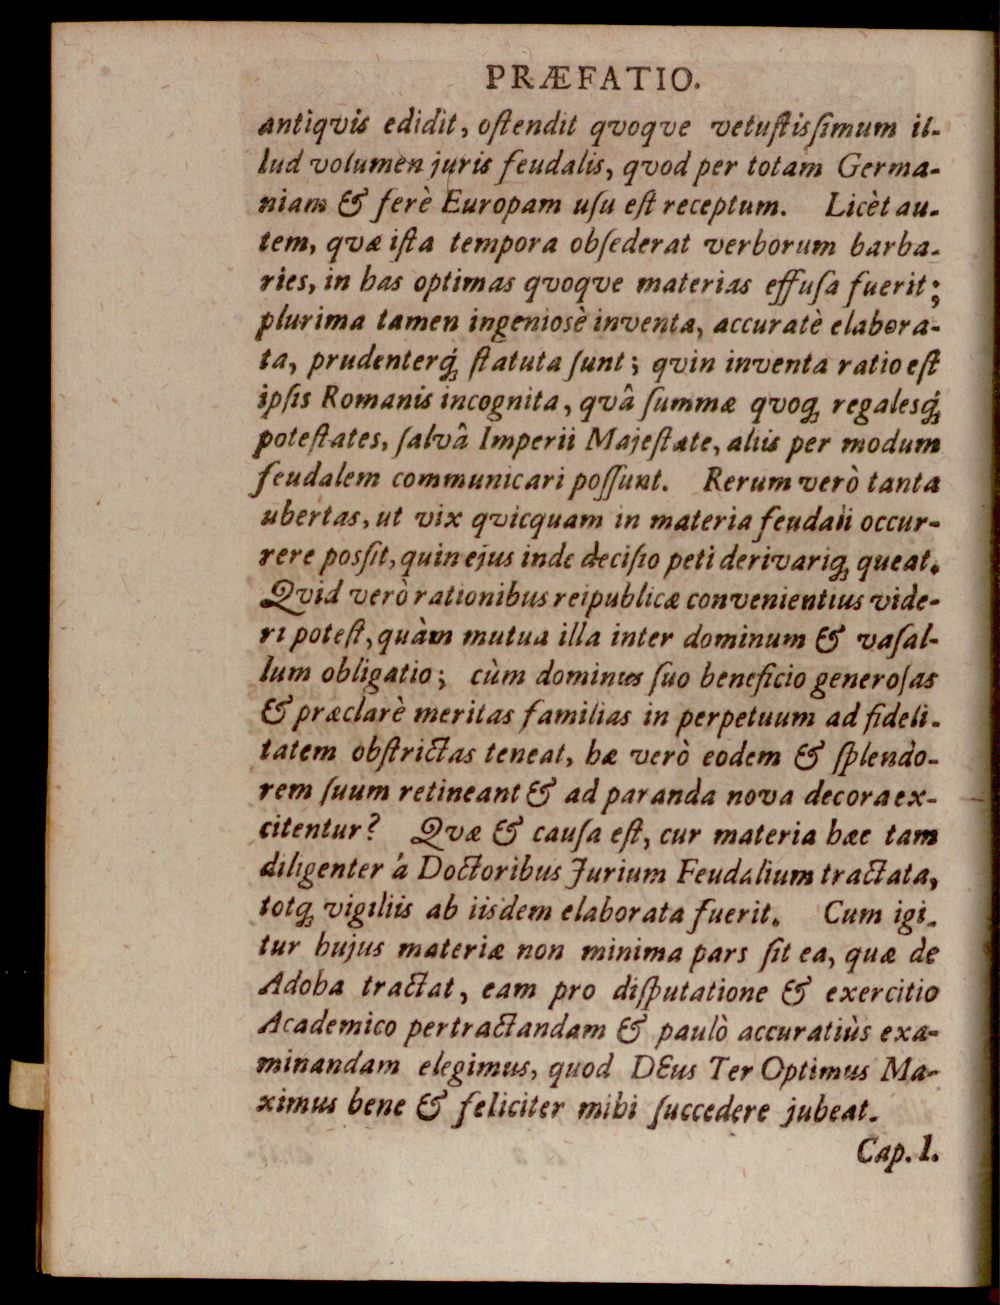 PRÆFATIO.
antiqvis edidit, oſtendit qvoqve vetuſtisſimum il-
lud volumen juris feudalis, qvod per totam Germa-
niam & ferè Europam uſu eſt receptum. Licèt au-
tem, qvæ iſta tempora obſederat verborum barba-
ries, in has optimas qvoqve materias effuſa fuerit;
plurima tamen ingeniosè inventa, accuratè elabora-
ta, prudenterq́; ſtatuta ſunt; qvin inventa ratio eſt
ipſis Romanis incognita, qvâ ſummæ qvoq; regalesq́;
poteſtates, ſalvâ Imperii Majeſtate, aliis per modum
feudalem communicari poſſunt. Rerum verò tanta
ubertas, ut vix qvicquam in materia feudali occur-
rere posſit, quin ejus inde deciſio peti derivariq; queat.
Qvid verò rationibus reipublicæ convenientius vide-
ri poteſt, quàm mutua illa inter dominum & vaſal-
lum obligatio; cùm dominus ſuo beneficio generoſas
& præclarè meritas familias in perpetuum ad fideli-
tatem obſtrictas teneat, hæ verò eodem & ſplendo-
rem ſuum retineant & ad paranda nova decora ex-
citentur? Qvæ & cauſa eſt, cur materia hæc tam
diligenter á Doctoribus Jurium Feudalium tractata,
totq; vigiliis ab iisdem elaborata fuerit. Cum igi-
tur hujus materiæ non minima pars ſit ea, quæ de
Adoha tractat, eam pro diſputatione & exercitio
Academico pertractandam & paulò accuratiùs exa-
minandam elegimus, quod DEus Ter Optimus Ma-
ximus bene & feliciter mihi ſuccedere jubeat.
Cap. I.